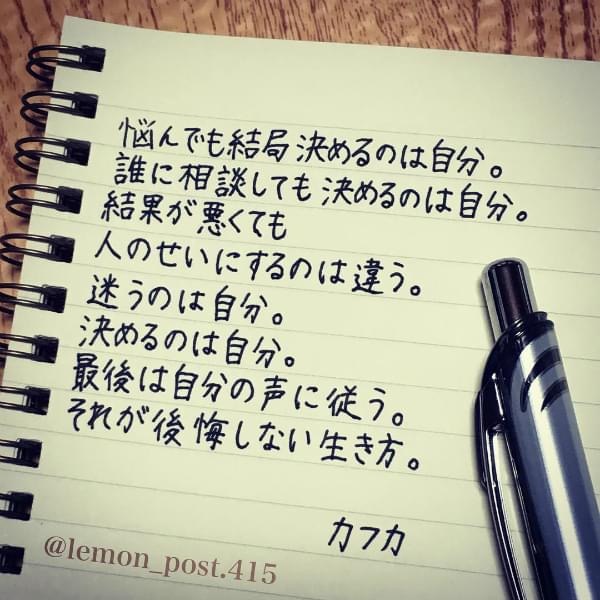 悩んでも結局決めるのは自分。
誰に相談しても決めるのは自分。
結果が悪くても
人のせいにするのは違う。
迷うのは自分。
決めるのは自分。
最後は自分の声に従う。
それが後悔しない生き方。
カフカ
@lemon_post.415